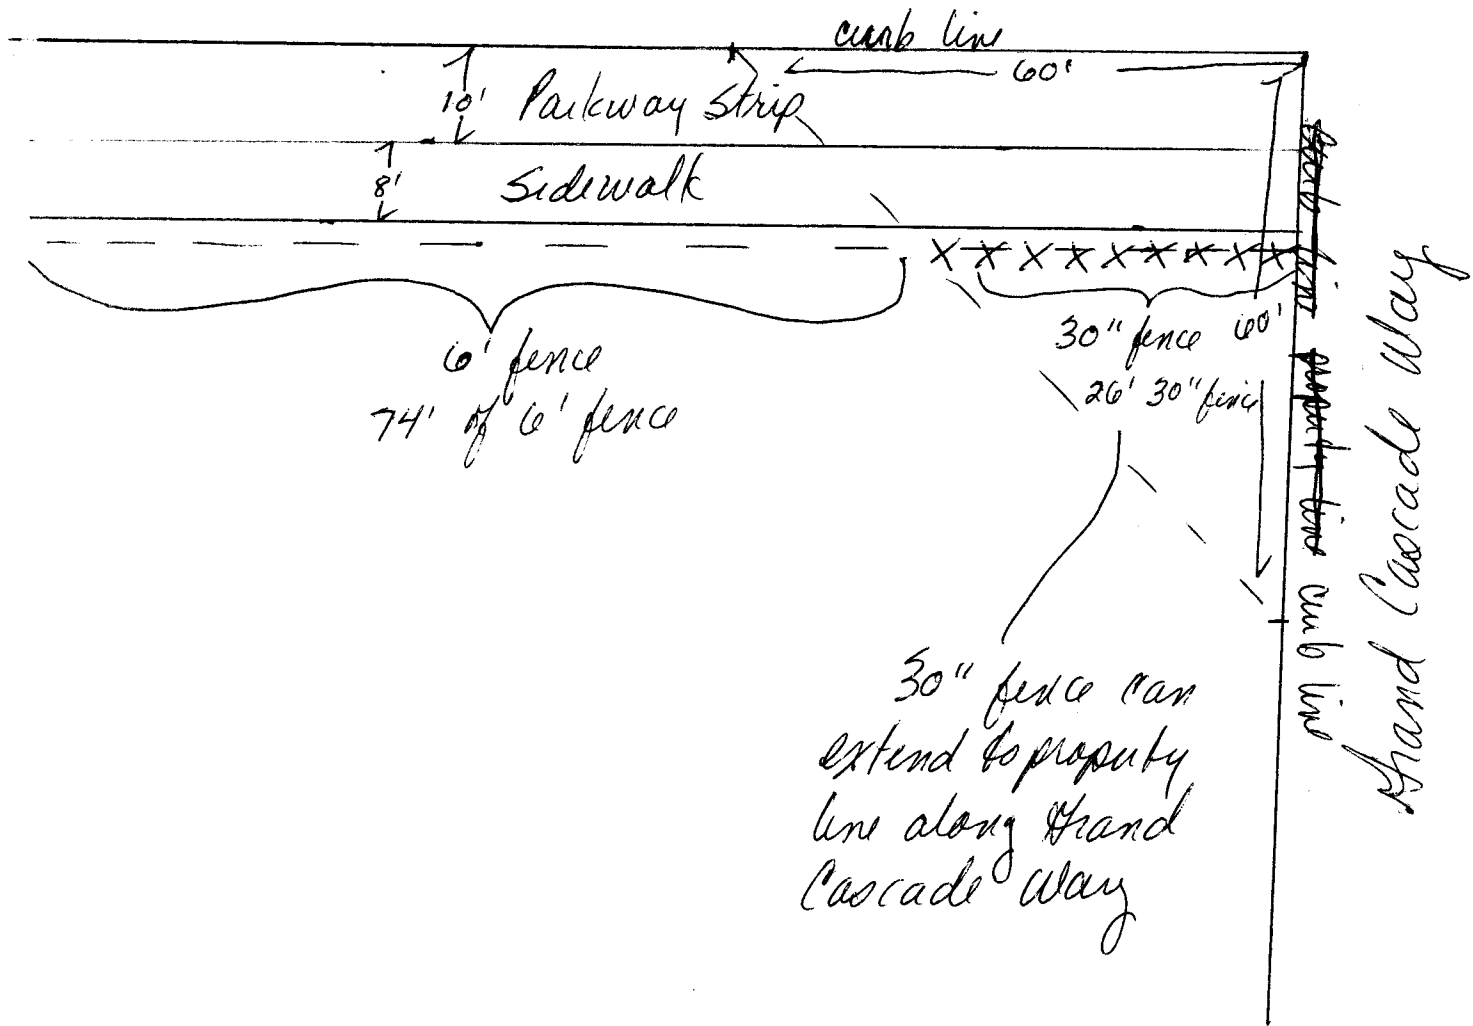 curb line
60'
10' Parkway Strip
8' Sidewalk
X X X X X X X X X
6' fence
74' of 6' fence
30" fence 60'
26' 30" fence
30" fence can
extend to property
line along Grand
Cascade Way
property line curb line
Grand Cascade Way